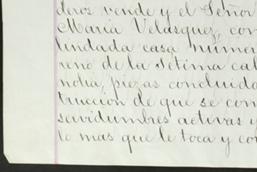 deros vende y el Señor
Maria Velasquez, con
lindada casa numer
reno de la Sétima cal
ncha, piezas concluido
truccion de que se com
servidumbres activas y
lo mas que le toca y co